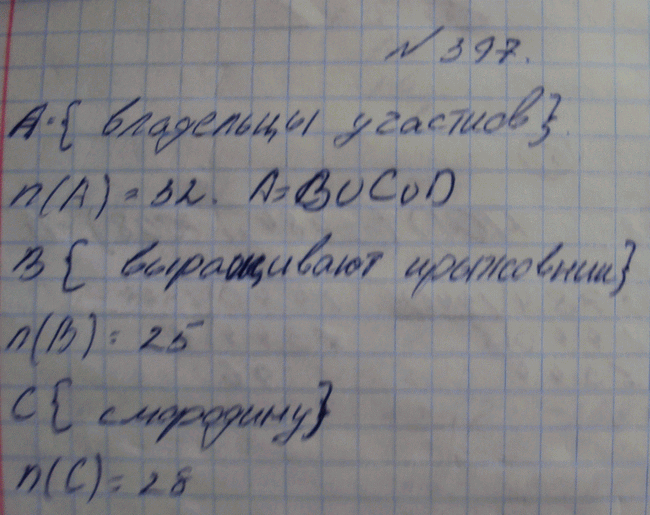 № 397.
A = { владельцы участков }
n(A) = 32. A = B∪C∪D
B { выращивают крыжовник }
n(B) = 25
C { смородину }
n(C) = 28